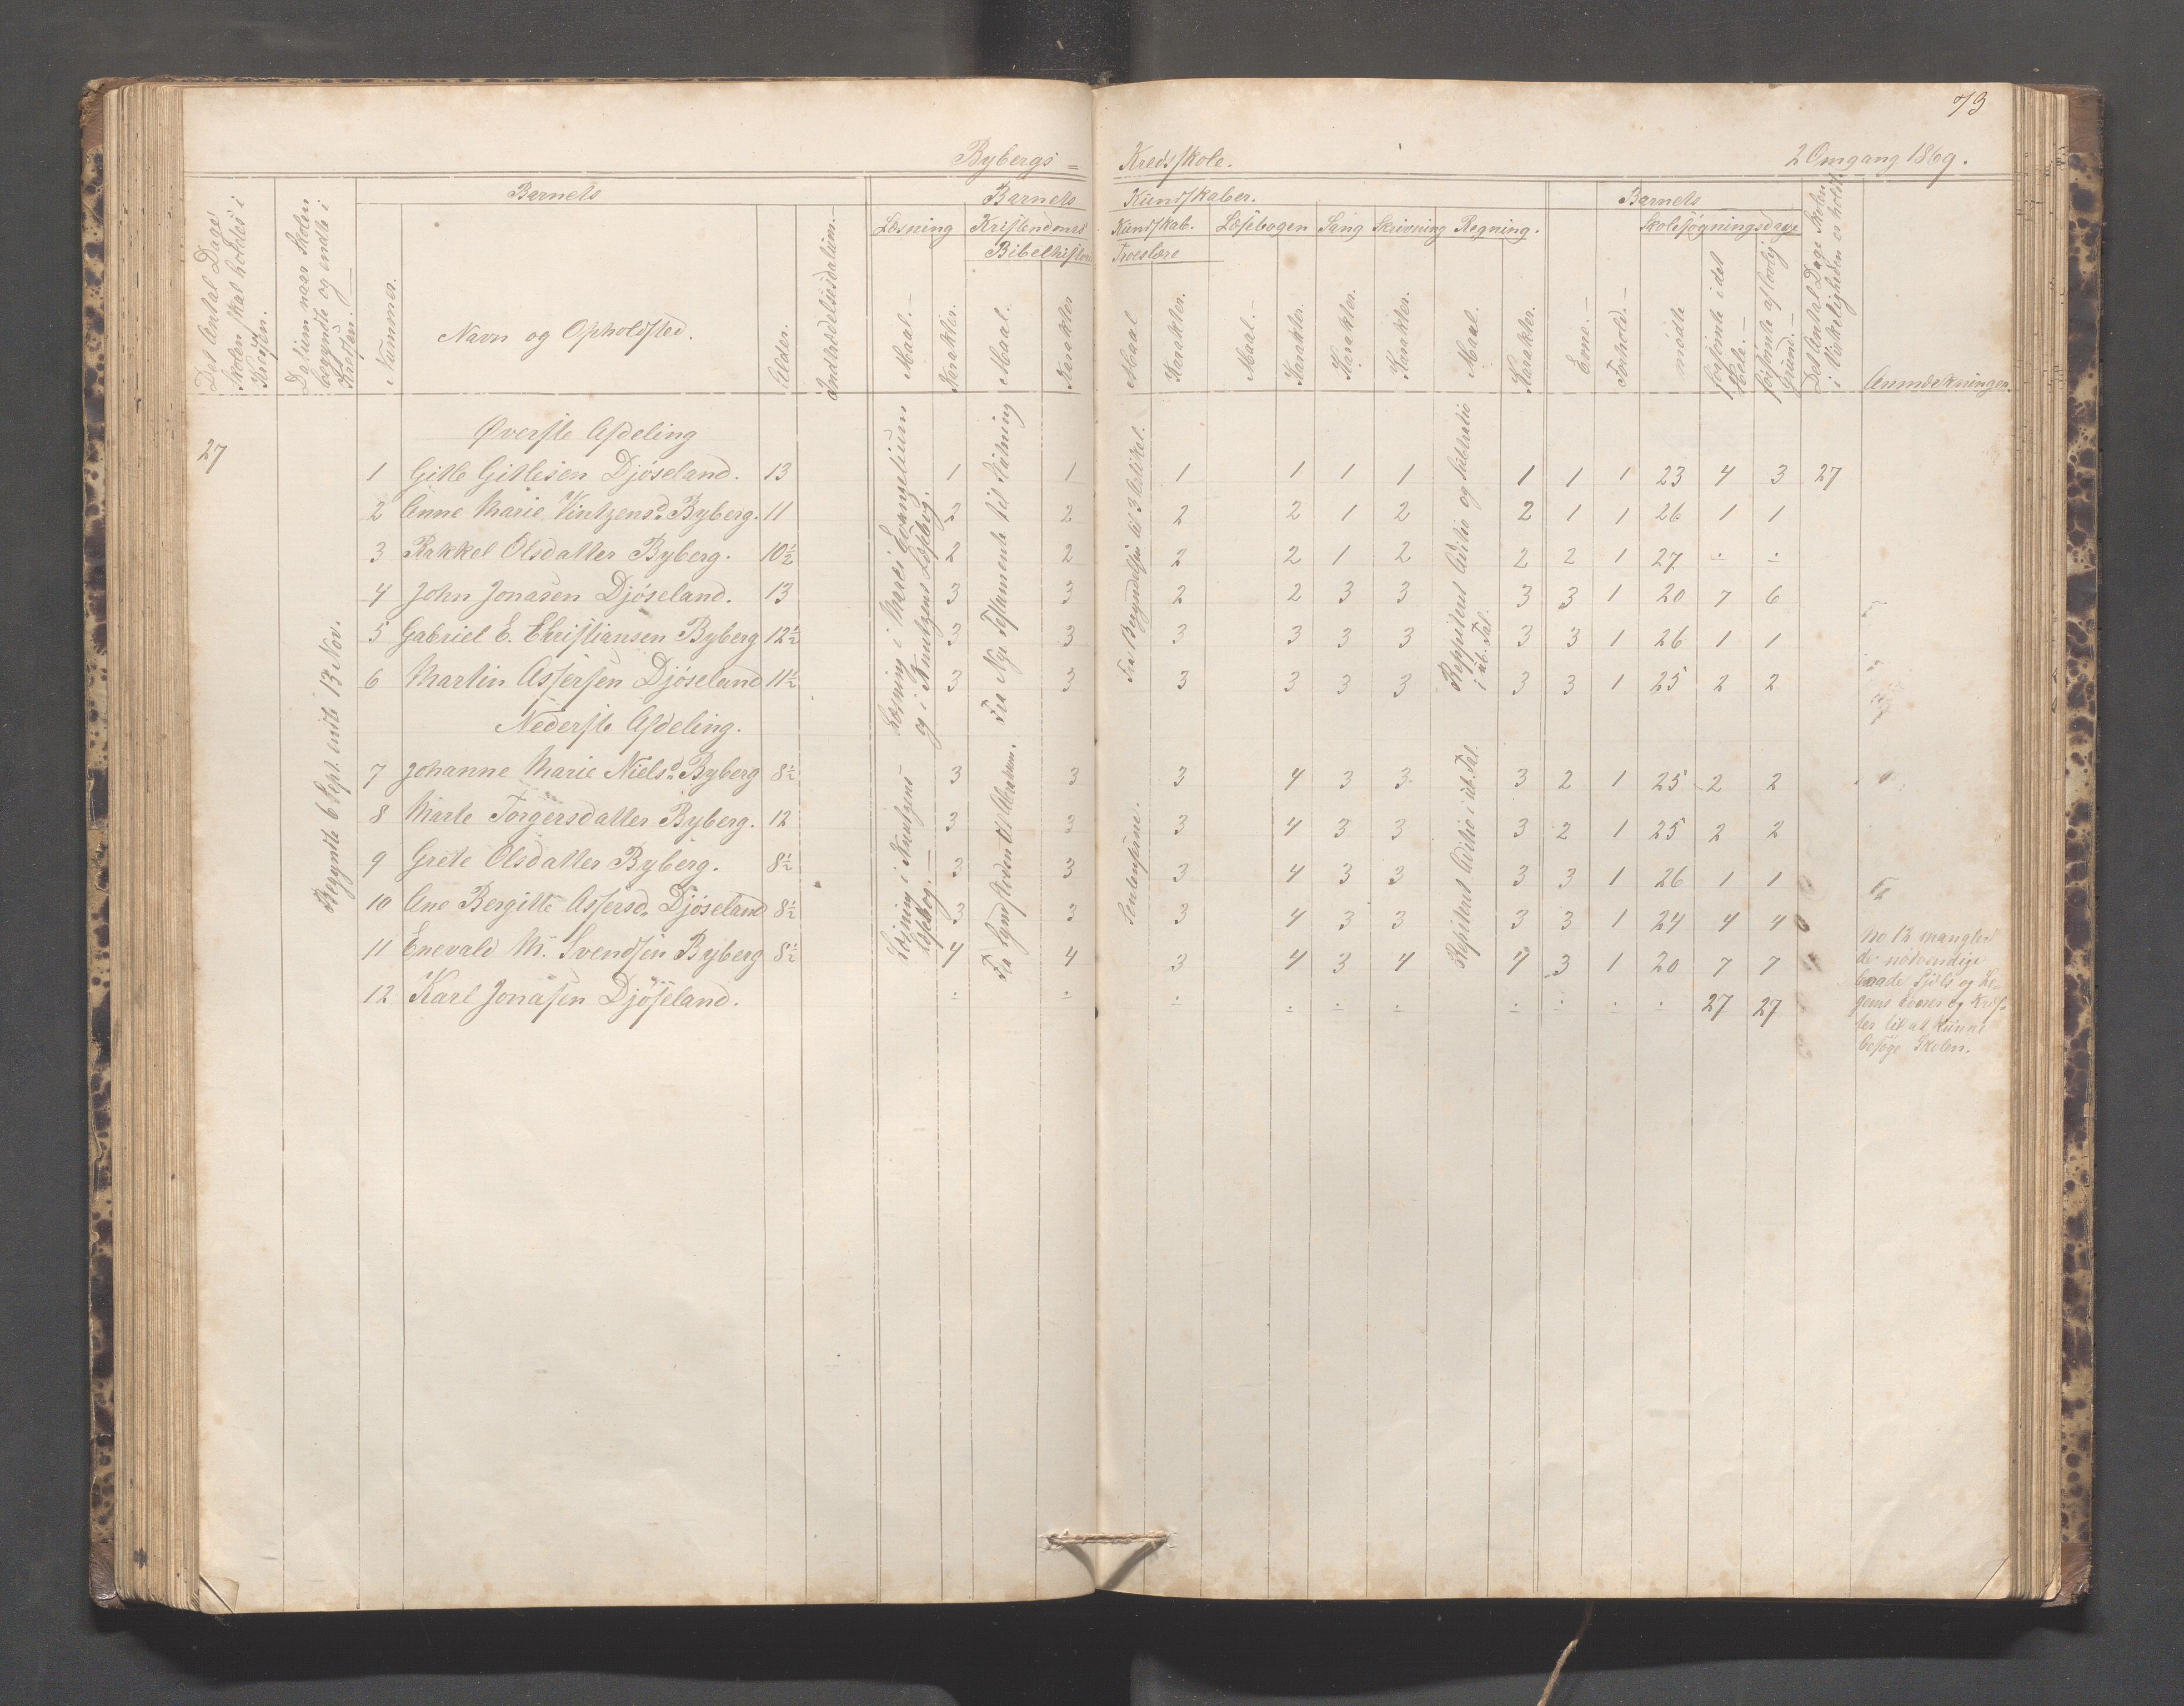 73
Bybergs = Kredsskole. 2 Omgang 1869.
Det Antal Dage Skolen skal holdes i Kredsen.
Datum naar Skolen begyndte og endte i Kredsen.
Barnets
Nummer.
Navn og Opholdsted.
Alder.
Indtrædelsesdatum.
Barnets Kundskaber.
Læsning
Maal.
Karakter.
Kristendoms Kundskab.
Bibelhistorie
Maal.
Karakter
Troeslære
Maal
Karakter.
Læsebogen
Maal.
Karakter.
Sang
Karakter.
Skrivning
Karakter.
Regning.
Maal.
Karakter.
Barnets
Evne.
Forhold.
Skolesøgningsdage
mødte
forsømte i det Hele.
forsømte af lovlig Grund.
Det Antal Dage Skolen i Virkeligheden er holdt
Anmærkninger.
27
Begyndte 6 Sept. endte 13 Nov.
Øverste Afdeling
Læsning i Marci Evangelium og i Knutzens Læsebog.
Fra Nye Testamente til Slutning
Fra Begyndelse til 3 Artikel.
Reppeteret Aditio og Subtratio i ub. Tal.
1 Gitle Gitlesen Djøseland. 13 1 1 1 1 1 1 1 1 1 23 4 3 27
2 Anne Marie Vintzensd. Byberg. 11 2 2 2 2 1 2 2 1 1 26 1 1
3 Rakkel Olsdatter Byberg. 10½ 2 2 2 2 1 2 2 2 1 27 ÷ ÷
4 John Jonasen Djøseland. 13 3 3 2 2 3 3 3 3 1 20 7 6
5 Gabriel E. Christiansen Byberg 12½ 3 3 3 3 3 3 3 3 1 26 1 1
6 Martin Assersen Djøseland 11½ 3 3 3 3 3 3 3 3 1 25 2 2
Nederste Afdeling.
Læsning i Knutzens Læsebog.
Fra Syndfloden til Abraham.
Repiteret Aditio i ub. Tal.
7 Johanne Marie Nielsd. Byberg 8½ 3 3 3 4 3 3 3 2 1 25 2 2
8 Marte Torgersdatter Byberg. 12 3 3 3 4 3 3 3 2 1 25 2 2
9 Grete Olsdatter Byberg. 8½ 3 3 3 4 3 3 3 3 1 26 1 1
10 Ane Bergitte Assersd. Djøseland 8½ 3 3 3 4 3 3 3 3 1 24 4 4
11 Enevald M. Svendsen Byberg 8½ 4 4 3 4 3 4 4 3 1 20 7 7
12 Karl Jonasen Djøseland. ÷ ÷ ÷ ÷ ÷ ÷ ÷ ÷ ÷ ÷ 27 27
No 12 mangled
de nødvendige
baade Sjels og Le-
gems Evner og Kræf-
ter til at kunne
besøge Skolen.